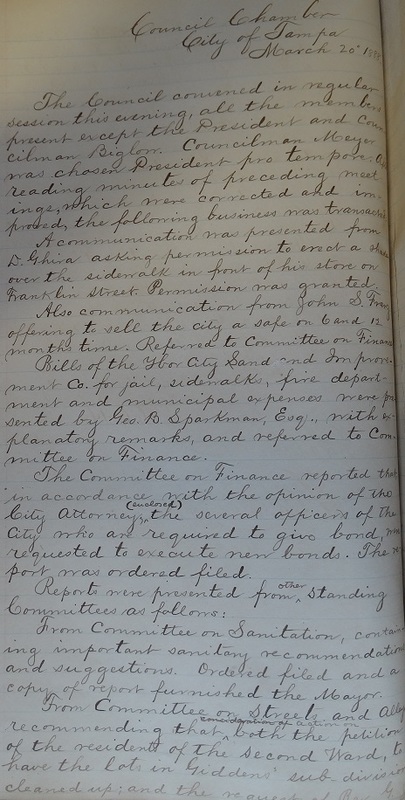 Council Chamber
City of Tampa
March 20th
The Council convened in regular
session this evening, all the members
present except the President and Coun
cilman Biglow. Councilman Meyer
was chosen President pro tempore.
reading minutes of preceding meet
ings, which were corrected and im-
proved, the following business was transacted
A communication was presented from
D. Ghira asking permission to erect a
over the sidewalk in front of his store on
Franklin Street. Permission was granted.
Also communication from John S.
offering to sell the city a safe on 6 and 12
months time. Referred to Committee on Finance
Bills of the Ybor City Land and Improve
ment Co. for jail, sidewalks, fire depart-
ment and municipal expenses were pre
sented by Geo. B. Sparkman, Esq., with ex
planatory remarks, and referred to Com-
mittee on Finance.
The Committee on Finance reported that
in accordance with the opinion of the
City Attorney, (enclosed) the several officers of the
City who are required to give bond, was
requested to execute new bonds. The re
port was ordered filed.
Reports were presented from other Standing
Committees as follows:
From Committee on Sanitation, contain
ing important sanitary recommendations
and suggestions. Ordered filed and a
copy of report furnished the Mayor.
From Committee on Streets and Alleys
recommending that consideration of action on both the petition
of the residents of the Second Ward, to
have the lots in Giddens' sub-division
cleaned up; and the request of